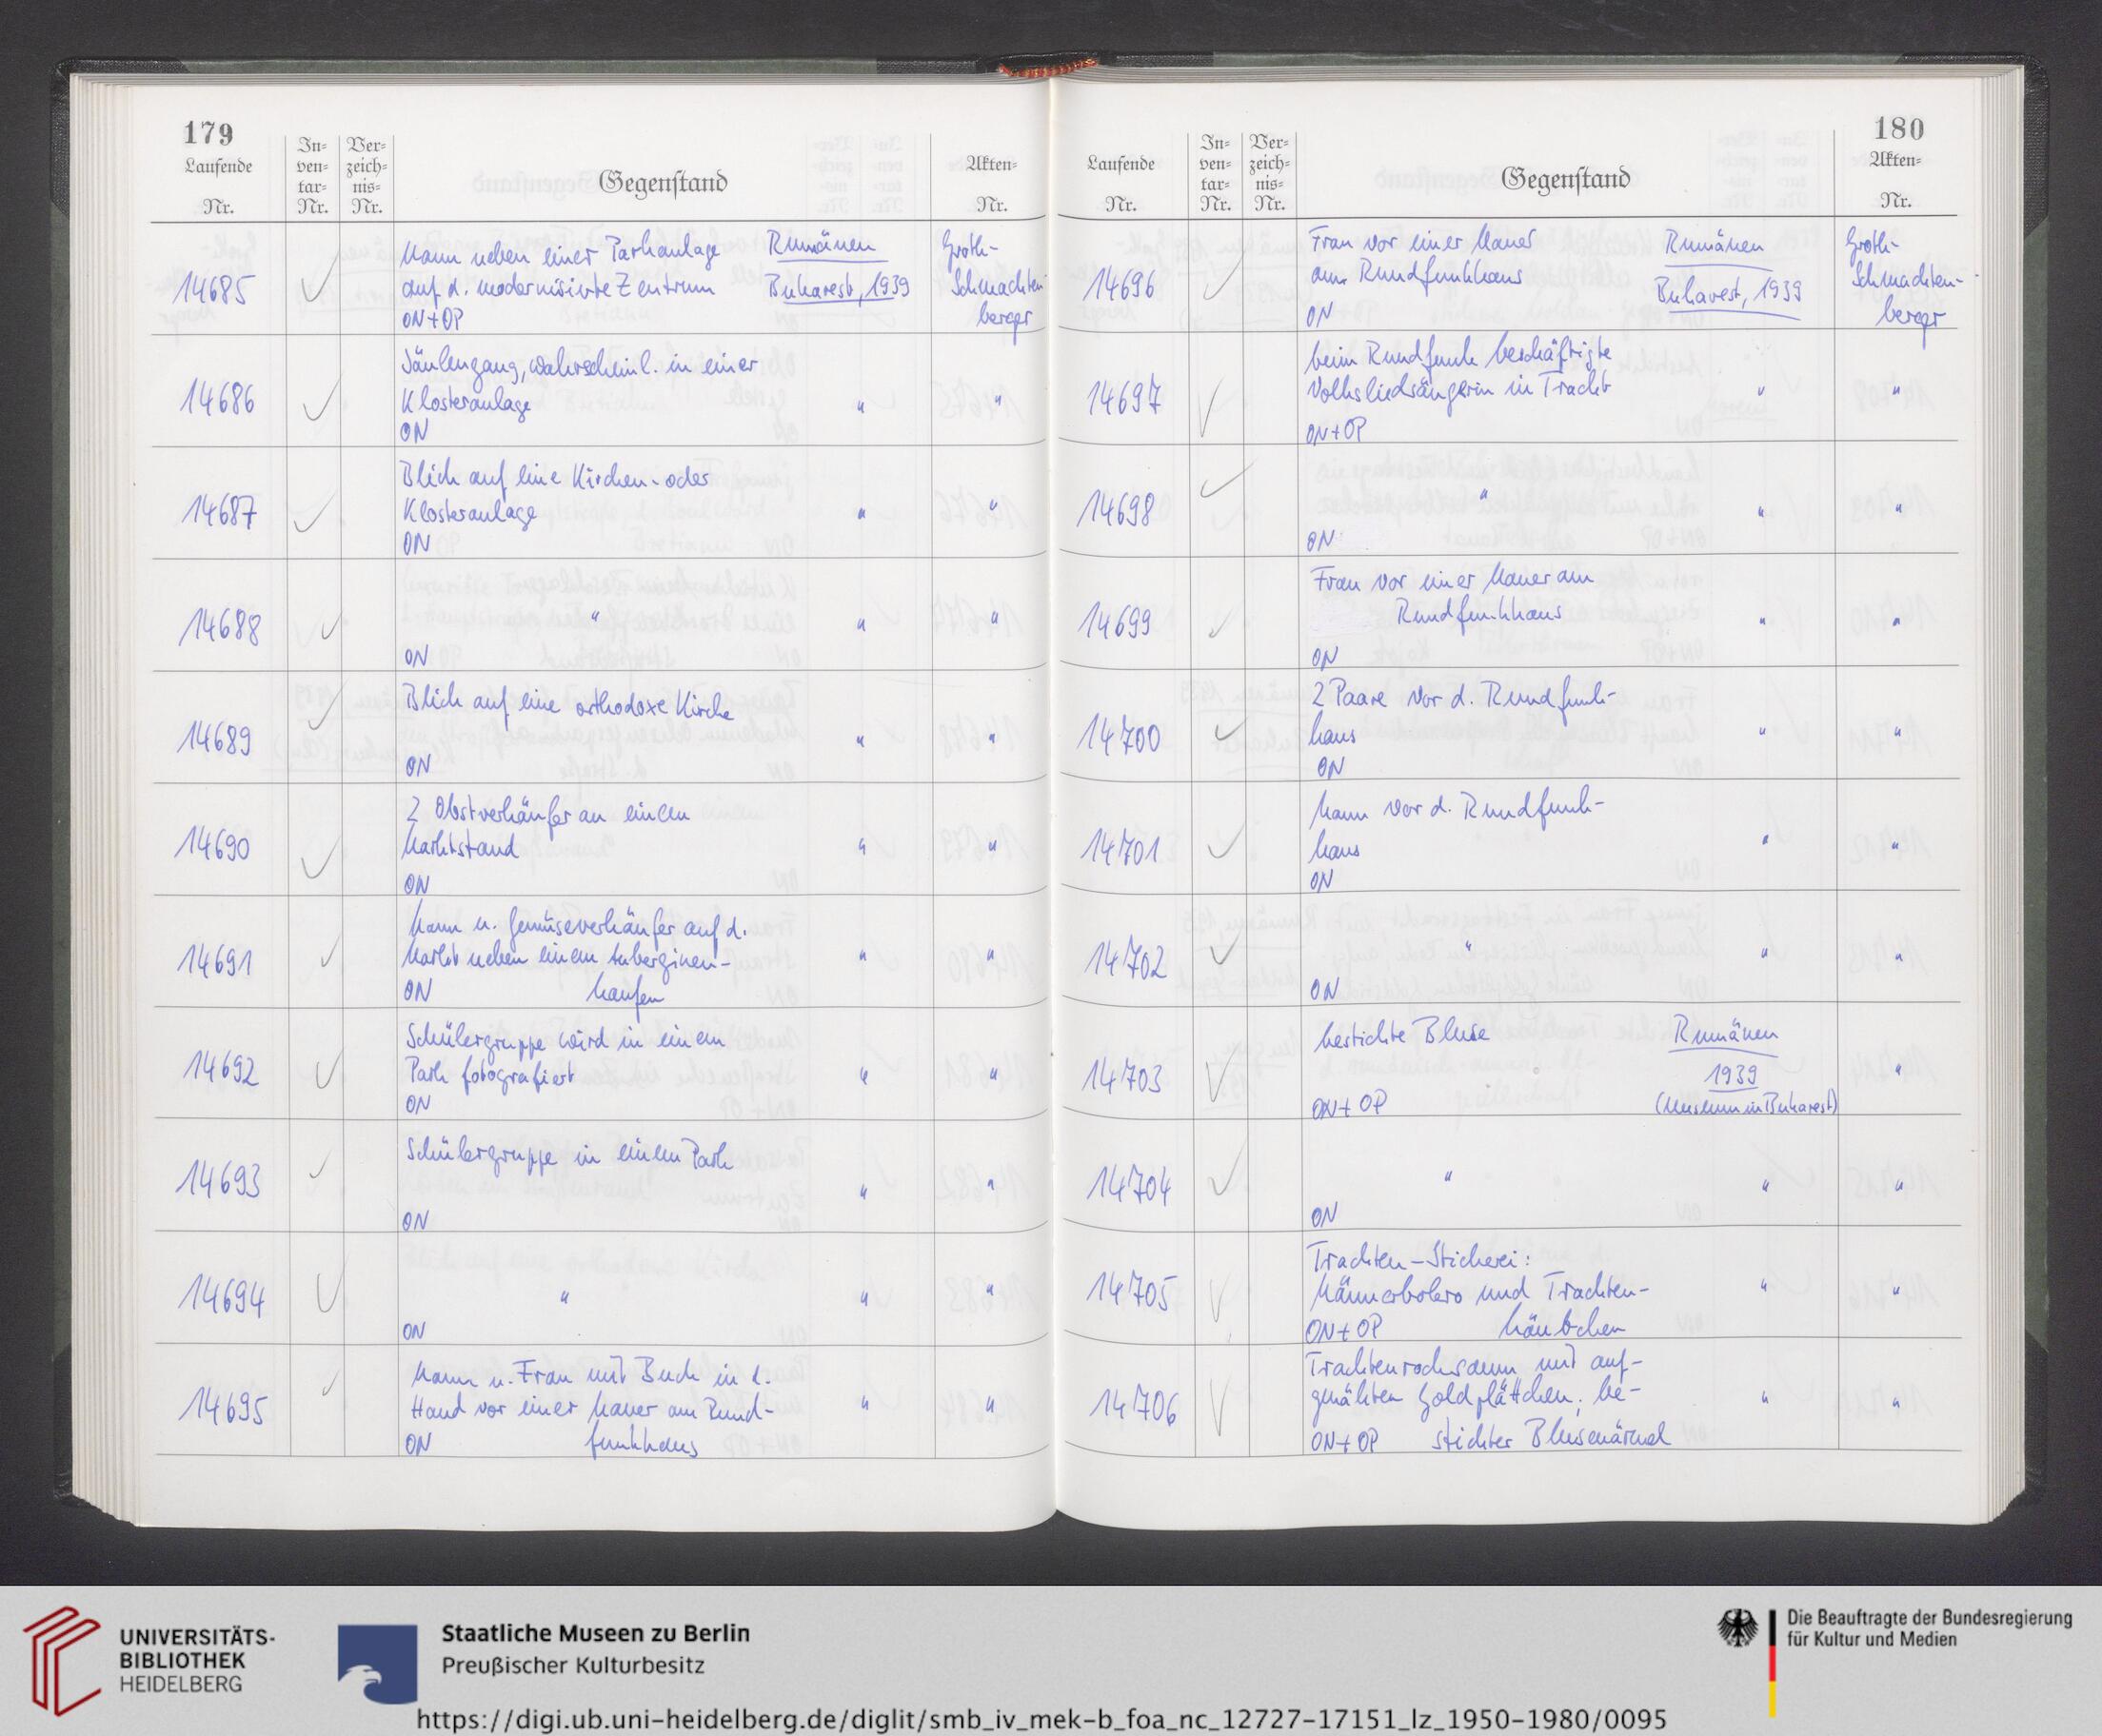 179
Laufende Nr.
In-ven-tar-Nr.
Ver-zeich-nis-Nr.
Gegenstand
Akten-Nr.
14685
Mann neben einer Parkanlage
auf d. modernisierte Zentrum
ON+OP
Rumänen
Bukarest, 1939
Groth-
Schmachten
berger
14686
Säulengang, wahrscheinl. in einer
Klosteranlage
ON
" "
14687
Blick auf eine Kirchen- oder
Klosteranlage
ON
" "
14688
"
ON
" "
14689
Blick auf eine orthodoxe Kirche
ON
" "
14690
2 Obstverkäufer an einem
Marktstand
ON
" "
14691
Mann u. Gemüseverkäufer auf d.
Markt neben einem Auberginen-
ON haufen
" "
14692
Schülergruppe wird in einem
Park fotografiert
ON
" "
14693
Schülergruppe in einem Park
ON
" "
14694
"
ON
" "
14695
Mann u. Frau mit Buch in d.
Hand vor einer Mauer am Rund-
ON funkhaus
" "
180
Laufende Nr.
In-ven-tar-Nr.
Ver-zeich-nis-Nr.
Gegenstand
Akten-Nr.
14696
Frau vor einer Mauer
am Rundfunkhaus
ON
Rumänen
Bukarest, 1939
Groth-
Schmachten-
berger
14697
beim Rundfunk beschäftigte
Volksliedsängerin in Tracht
ON+OP
" "
14698
"
ON
" "
14699
Frau vor einer Mauer am
Rundfunkhaus
ON
" "
14700
2 Paare vor d. Rundfunk-
haus
ON
" "
14701
Mann vor d. Rundfunk-
haus
ON
" "
14702
"
ON
" "
14703
bestickte Bluse
ON+OP
Rumänen
1939
(Museum in Bukarest)
"
14704
"
ON
" "
14705
Trachten-Stickerei:
Männerbolero und Trachten-
ON+OP häubchen
" "
14706
Trachtenrocksaum mit auf-
genähten Goldplättchen; be-
ON+OP stickter Blusenärmel
" "
UNIVERSITÄTS-
BIBLIOTHEK
HEIDELBERG
Staatliche Museen zu Berlin
Preußischer Kulturbesitz
Die Beauftragte der Bundesregierung
für Kultur und Medien
https://digi.ub.uni-heidelberg.de/diglit/smb_iv_mek-b_foa_nc_12727-17151_lz_1950-1980/0095